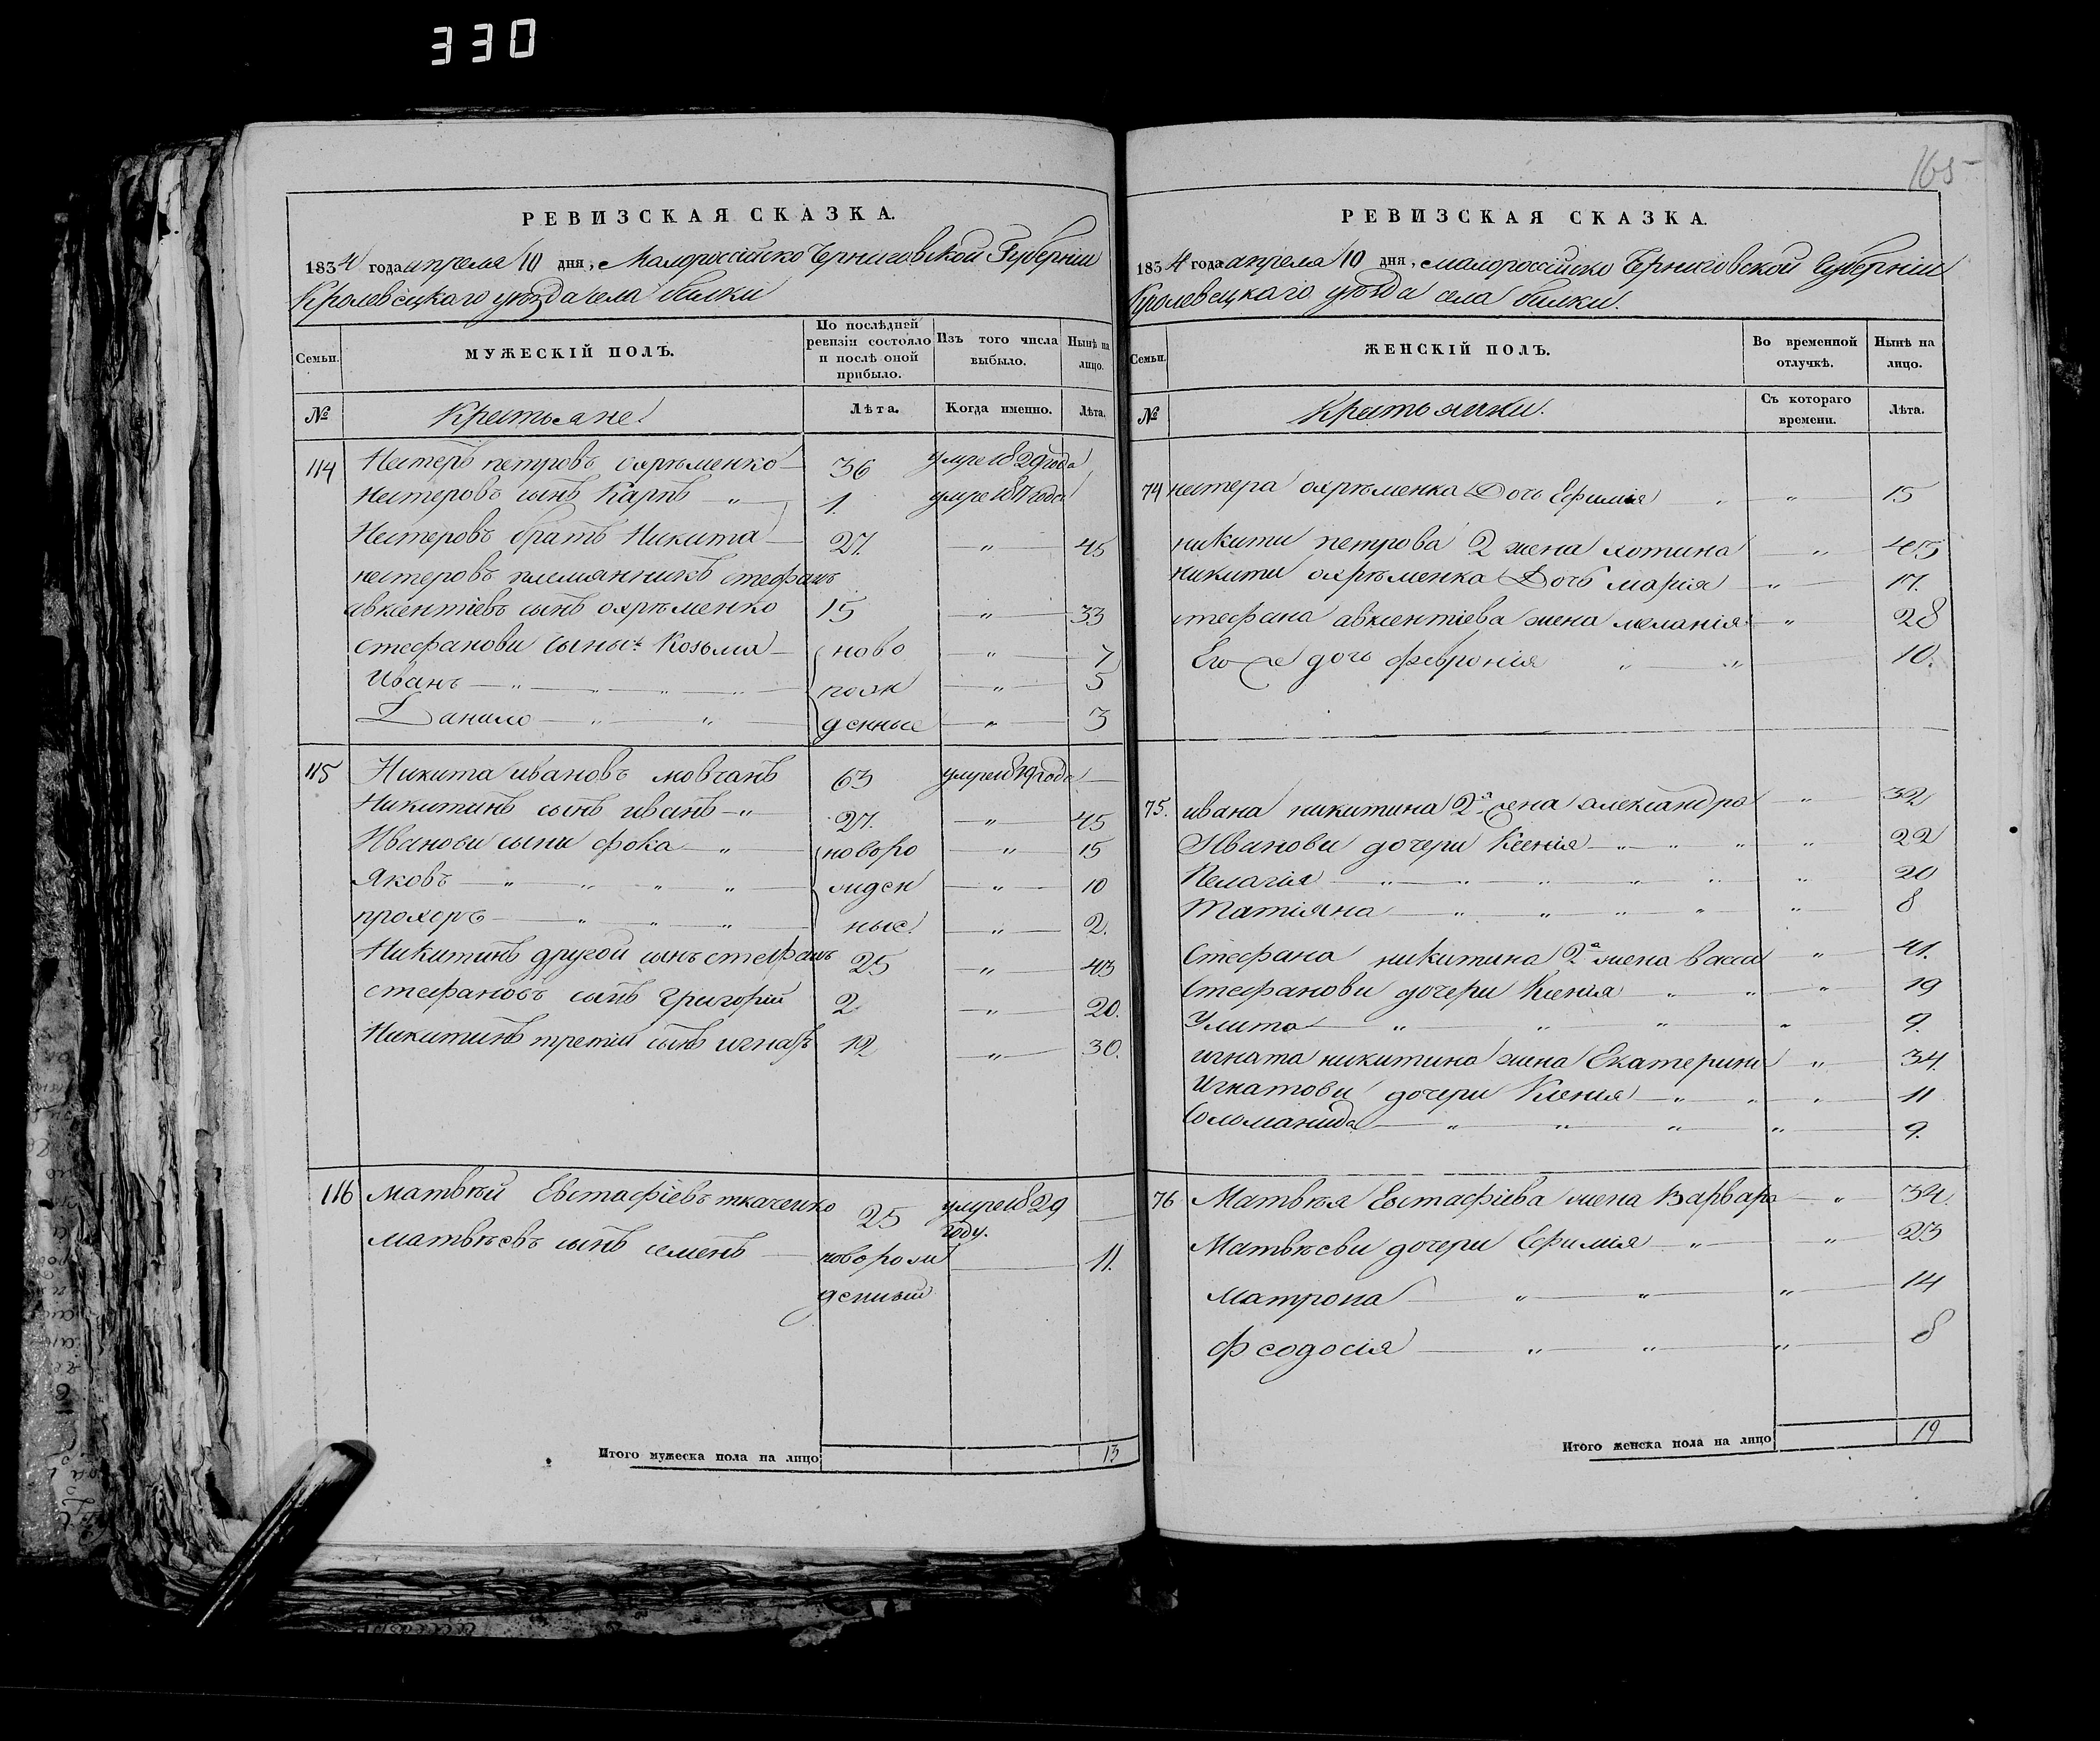 330
РЕВИЗСКАЯ СКАЗКА.
1834 года апреля 10 дня, Малороссійско Черниговской Губерніи
Кролевецкаго уѣзда села билки
Семьи.
МУЖЕСКІЙ ПОЛЪ.
По послѣдней ревизіи состояло и послѣ оной прибыло.
Изъ того числа выбыло.
Нынѣ на лицо.
№
Крестьяне
Лѣта.
Когда именно.
Лѣта.
114 Нестеръ петровъ охрѣменко 36 умре 1829 года
Нестеровъ сынъ Карпъ " 1. умре года
Нестеровъ братъ Никита 27. " 45
нестеровъ племянникъ стефанъ
авксентіевъ сынъ охрѣменко 15 " 33
стефанови сыны: Козьма ново " 7
Иванъ " " " " рож " 5
Данило " " денные " 3
115 Никита ивановъ мовчанъ 63 умре 1819 года
Никитинъ сынъ иванъ " 27. " 45
Иванови сыни фока " новоро " 15
Яковъ " " " " жден " 10
прохоръ " " " ные. " 2.
Никитинъ другой сынъ стефанъ 25 " 43
стефановъ сынъ григорій 2 " 20.
Никитинъ третій сынъ игнатъ 12 " 30.
116 матвѣй Евстафіевъ ткаченко 25 умре 1829
году.
матвѣевъ сынъ семенъ новорож 11.
денный
Итого мужеска пола на лицо 13
165
РЕВИЗСКАЯ СКАЗКА.
1834 года апреля 10 дня, малороссійско Черниговской Губерніи
Кролевецкаго уѣзда села билки.
Семьи.
ЖЕНСКІЙ ПОЛЪ.
Во временной отлучкѣ.
Нынѣ на лицо.
№
Крестьянки.
Съ котораго времени.
Лѣта.
74 нестера охрѣменка Дочь Ефимія " " 15
никити петрова 2 жена хотина " 45
никити охрѣменка Дочь марія " 17.
стефана авксентіева жена меланія " 28
Его же дочь февронія " " 10.
75. ивана никитина 2ª жена александра " 32
Иванови дочери Ксенія " " " " 22
Пелагія " " " " " " 20
Татіяна " " " " " 8
Стефана никитина 2ª жена васса " 41.
Стефанови дочери Ксенія " " " 19
Улита " " " " 9.
игната никитина жена Екатерина " 34.
Игнатови дочери Ксенія " " " 11
Соломанида " " " " 9.
76 Матвѣя Евстафіева жена Варвара " 34.
Матвѣеви дочери Ефимія " " 23
матрона " " " 14
феодосія " " " 8
Итого женска пола на лицо 19